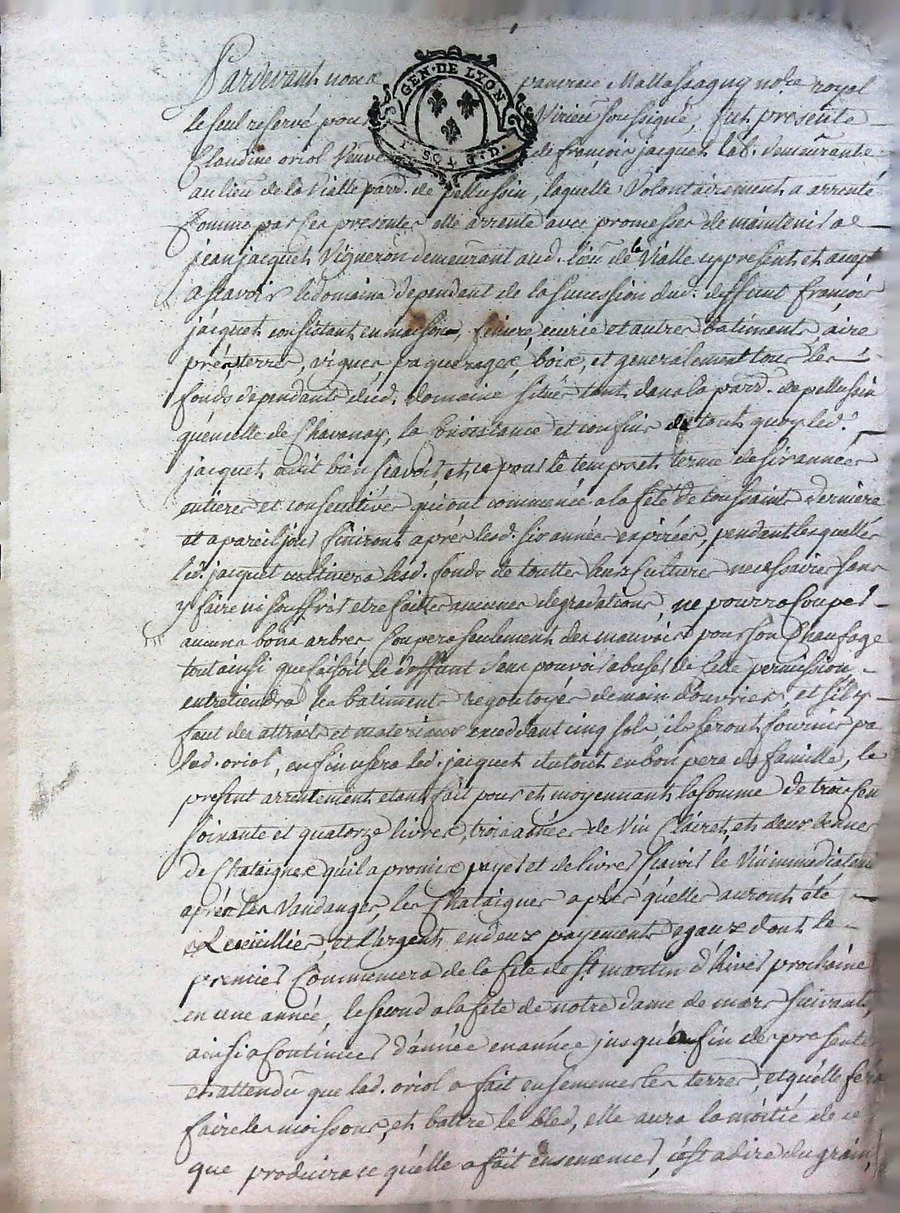 GEN. DE LYON
1. SOT 8. D.
Pardevant nous Mallassagny no.re royal
le seul reservé pour Virieu soussigné, fut presente
Claudine oriol veuve de francois jacquet lab. demeurante
au lieu de la Vialle par.d de pellussin, laquelle Volontairement a arrenté
comme par ces presentes elle arrente avec promesses de maintenir a
jean jacquet Vigneron demeurant aud. lieu de la Vialle cy present et accept
a scavoir le domaine dependant de la succession dud. deffunt françois
jacquet consistant en maison, feniere, ecurie et autres batiments aire
prés terres, vignes paquerages, bois, et generalement tous les
fonds dependants dud. domaine situés tant dans la par.d de pellussin
que celle de Chavanay, la Consistance et confins de tout quoy led.
jacquet a dit bien scavoir, et ce pour le temps et terme de six années
entieres et consecutives qui ont commencé a la fête de toussaint derniere
et a pareil jour finiront aprés lesd. six années expirées, pendant lesquelles
led. jacquet cultivera lesd. fonds de touttes leurs Cultures necessaires sans
y faire ni souffrir etre faittes aucunes degradations, ne pourra Couper
aucuns bons arbres Coupera seulement des mauvais pour son Chaufage
tout ainsi que faisoit le deffunt sans pouvoir abuser de cette permission
entretiendra les batiments regoutoyés de main d'ouvrier, et s'il y
faut des attraits et materiaux exceddant cinq sols ils seront fournis pa
lad. oriol, enfin usera led. jacquet du tout en bon pere de famille, le
present arrentement etant fait pour et moyennant la somme de trois cen
soixante et quatorze livres, trois anées de vin Clairet, et deux bennes
de Chataignes qu'il a promis payer et delivrer scavoir le Vin immediatem
aprés les Vandanges, les Chataignes aprés qu'elles auront été
Receüillies, et l'argent en deux payements égaux dont le
premier Commencera de la fête de St martin d'hiver prochaine
en une année, le second a la fête de notre dame de mars suivante,
ainsi a Continuer d'année en année jusqu'a fin des presentes
et attendu que lad. oriol a fait ensemencer les terres, et qu'elle fera
faire les moissons, et battre le bled, elle aura la moitié de ce
que produira ce qu'elle a fait ensemencer, c'est a dire du grain,